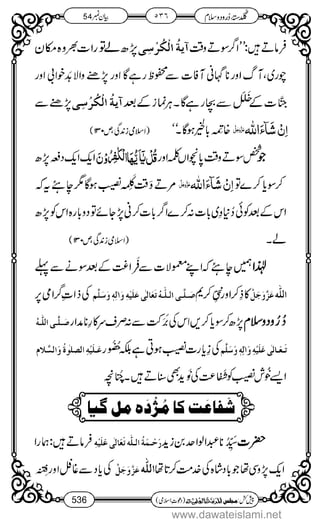 گلدستۂ درود و سلام ۵۳۶ بیان نمبر 54
فرماتے ہیں: ’’اگر سوتے وقت اٰیۃُ الْکُرْسِی پڑھ لے تو رات بھر وہ مکان
چوری، آگ اور ناگہانی آفات سے محفوظ رہے گا اور پڑھنے والا بدخوابی اور
جِنّات کے خَلَل سے بچا رہے گا۔ ہر نماز کے بعد اٰیۃُ الْکُرْسِی پڑھنے سے
اِنْ شَآءَ اللہ عزوجل خاتمہ بالخیر ہوگا۔‘‘ (اسلامی زندگی، ص ۱۳۰)
جو شخص سوتے وقت پانچواں کلمہ اور قُلْ یٰۤاَیُّهَا الْكٰفِرُوْنَ ایک ایک دفعہ پڑھ
کر سویا کرے تو اِنْ شَآءَ اللہ عزوجل مرتے وقت کلمہ نصیب ہوگا مگر چاہئے یہ کہ
اس کے بعد کوئی دنیاوی بات نہ کرے اگر بات کرنی پڑ جائے تو دوبارہ اس کو پڑھ
لے۔ (اسلامی زندگی، ص ۱۳۰)
لہٰذا ہمیں چاہئے کہ اپنے معمولات سے فراغت کے بعد سونے سے پہلے
اللہ عزوجل کا ذکر اور نبی کریم صَلَّی اللہُ تَعَالٰی عَلَیْہِ وَاٰلِہٖ وَسَلَّم کی ذاتِ گرامی پر
دُرُود و سلام پڑھ کر سویا کریں اس کی برکت سے نہ صرف سرکارِ نامدار صَلَّی اللہُ
تَعَالٰی عَلَیْہِ وَاٰلِہٖ وَسَلَّم کی زیارت نصیب ہوتی ہے بلکہ حضور عَلَیْہِ الصَّلٰوۃُ وَالسَّلَام
ایسے خوش نصیب کو شفاعت کی نوید بھی سناتے ہیں۔ چنانچہ
شَفاعَت کا مُژدَہ مل گیا
حضرت سیدنا عبدالواحد بن زید رَحْمَۃُ اللہِ تَعَالٰی عَلَیْہِ فرماتے ہیں: ہمارا
ایک پڑوسی تھا جو بادشاہ کی خدمت کرتا تھا اللہ عزوجل کی یاد سے غافل اور فتنہ و
پیش کش: مجلس المدینۃ العلمیۃ (دعوتِ اسلامی) 536
www.dawateislami.net